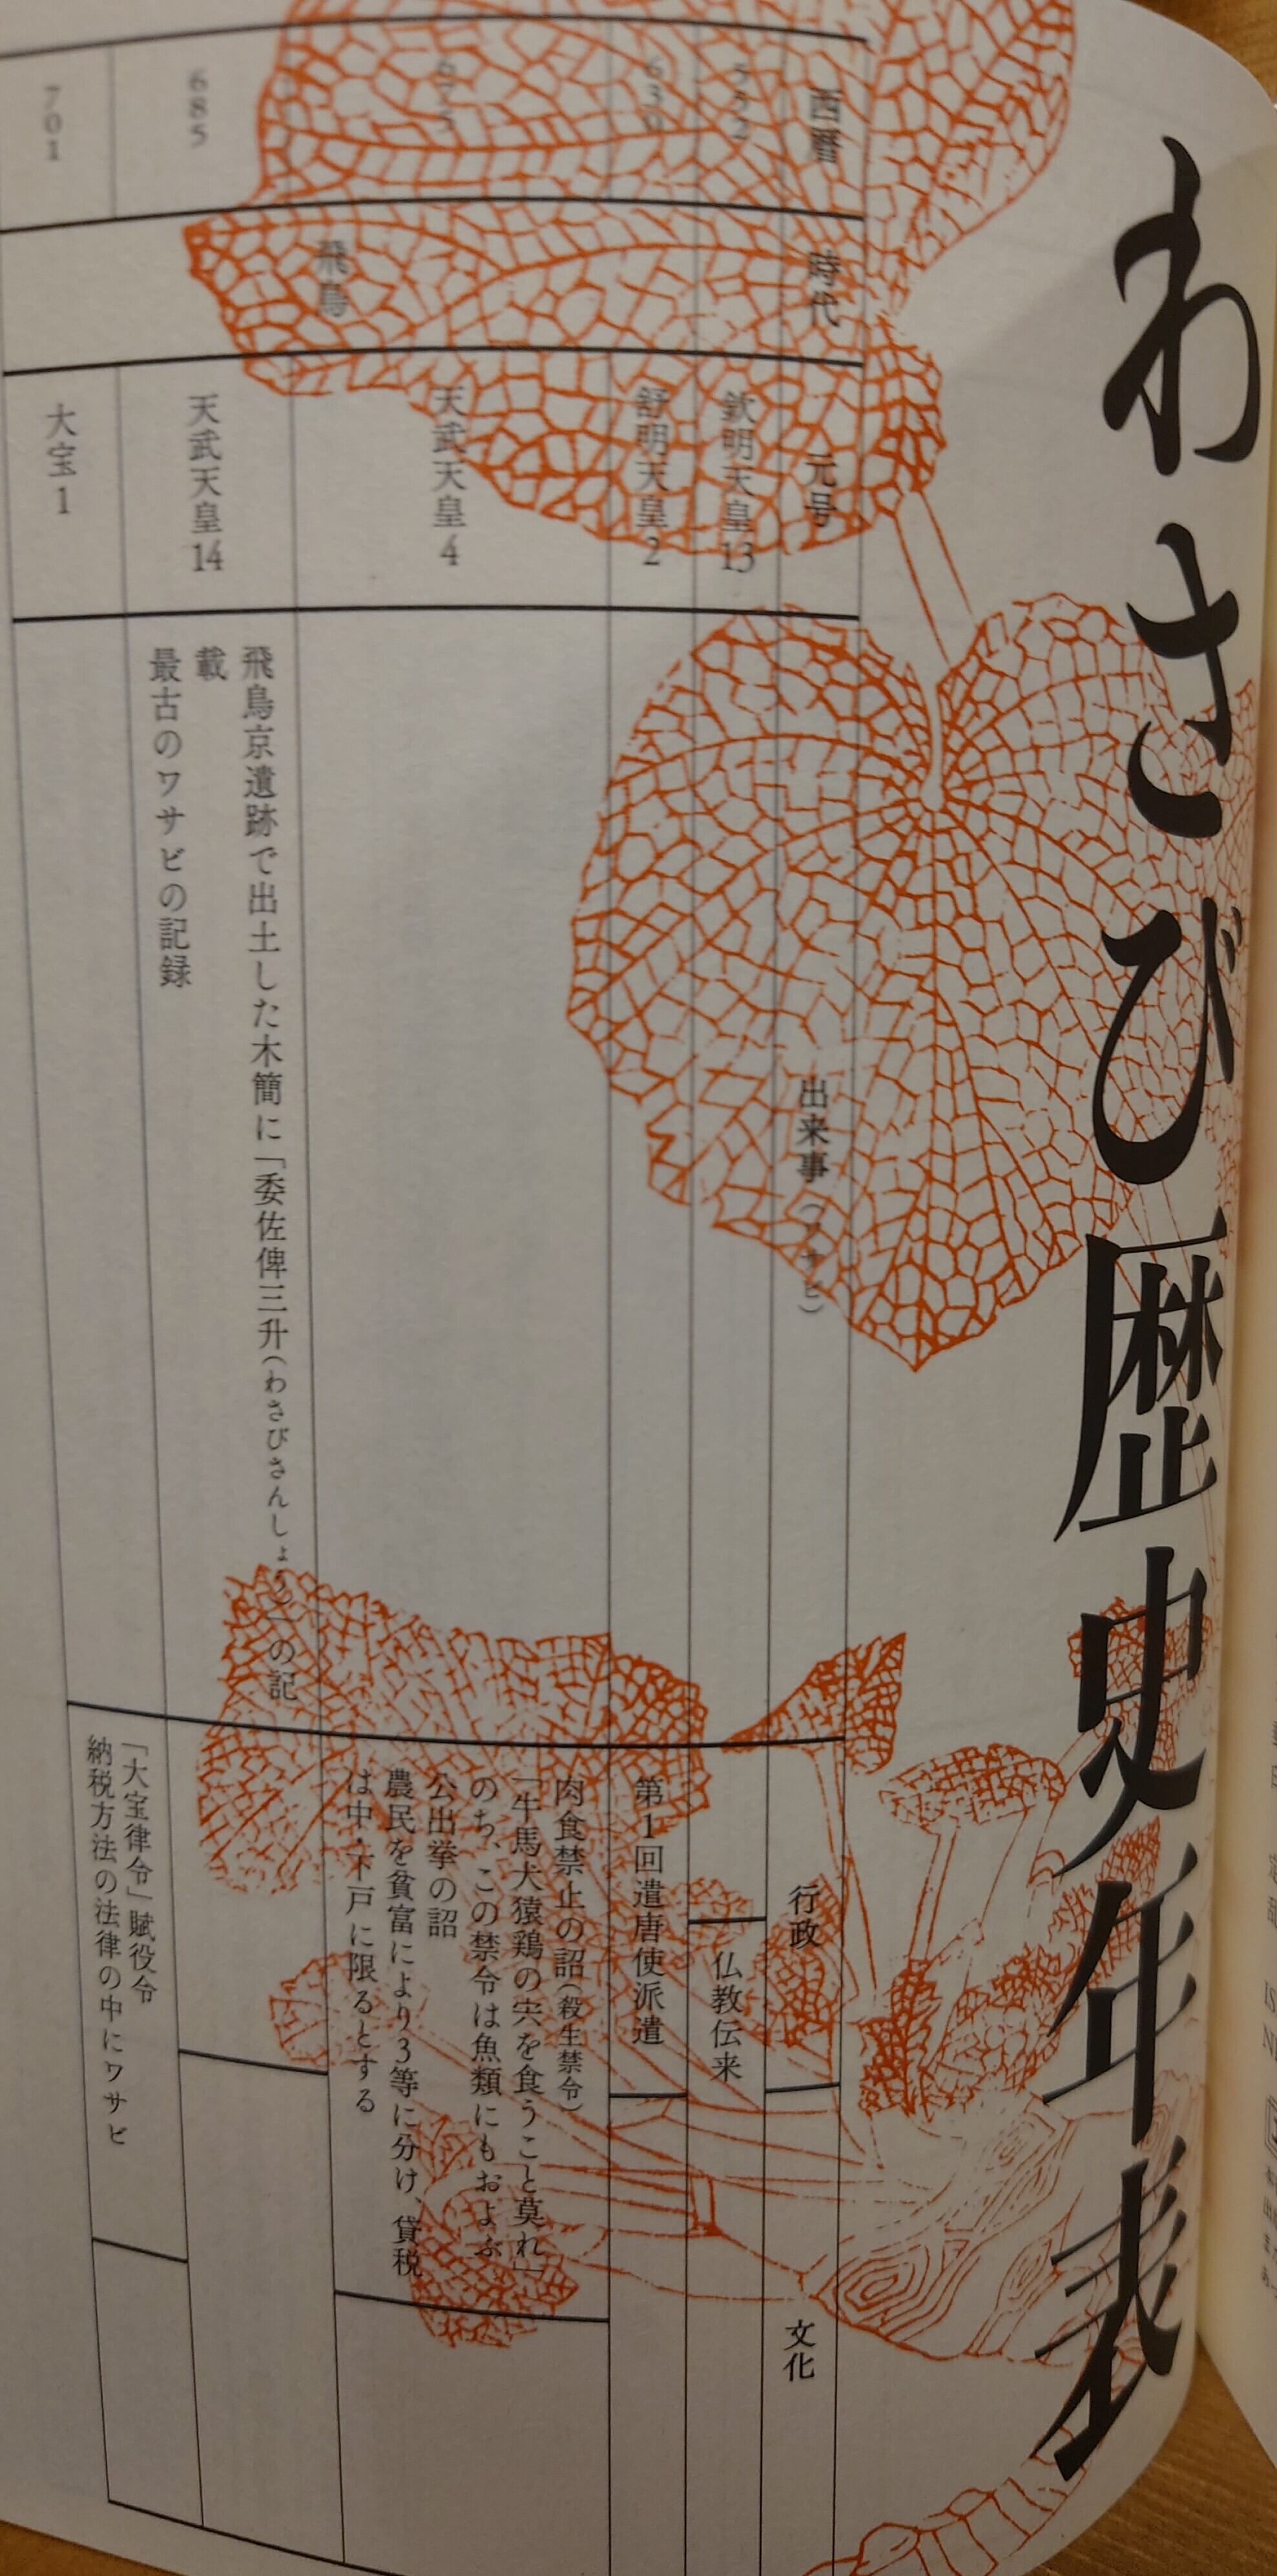 わさび歴史年表
西暦
時代
元号
出来事(ワサビ)
行政
文化
552
欽明天皇13
仏教伝来
630
舒明天皇2
第1回遣唐使派遣
675
飛鳥
天武天皇4
肉食禁止の詔(殺生禁令)
「牛馬犬猿鶏の宍を食うこと莫れ」
のち、この禁令は魚類にもおよぶ
公出挙の詔
農民を貧富により3等に分け、貸税
は中・下戸に限るとする
685
天武天皇14
飛鳥京遺跡で出土した木簡に「委佐俾三升(わさびさんしょう)」の記
載
最古のワサビの記録
701
大宝1
「大宝律令」賦役令
納税方法の法律の中にワサビ